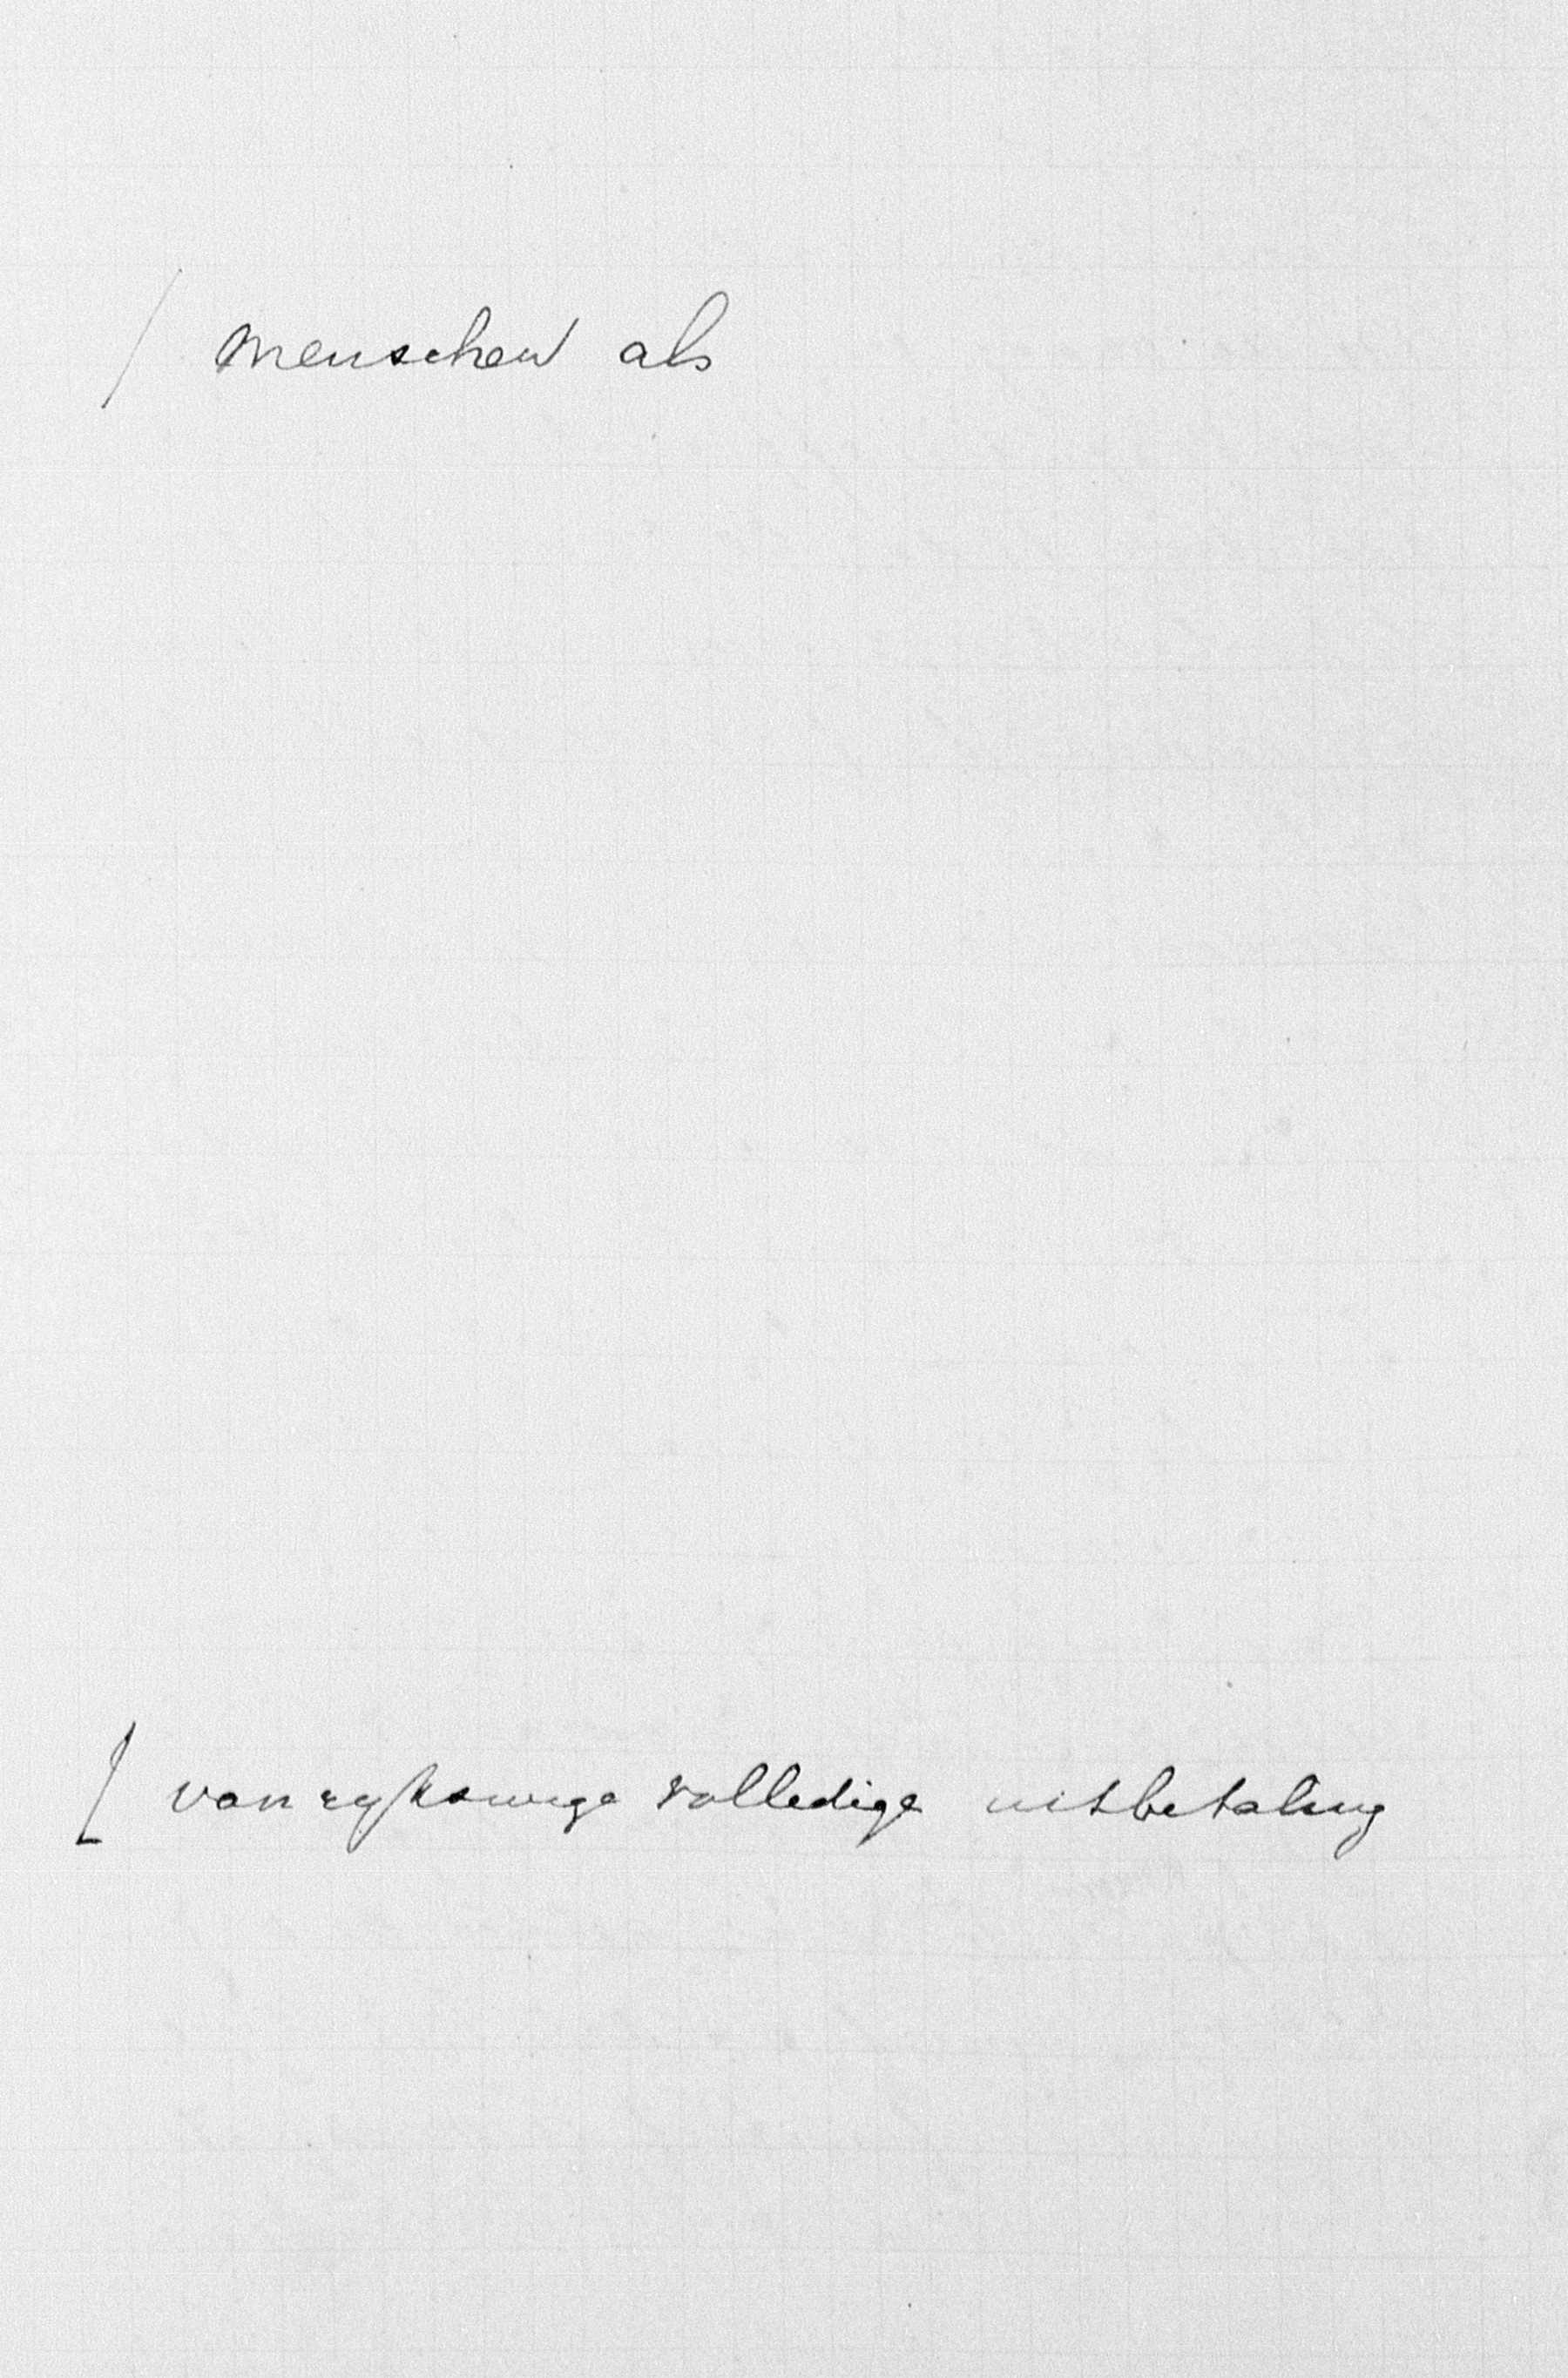 / menschen als
[ van rykswege volledige uitbetaling